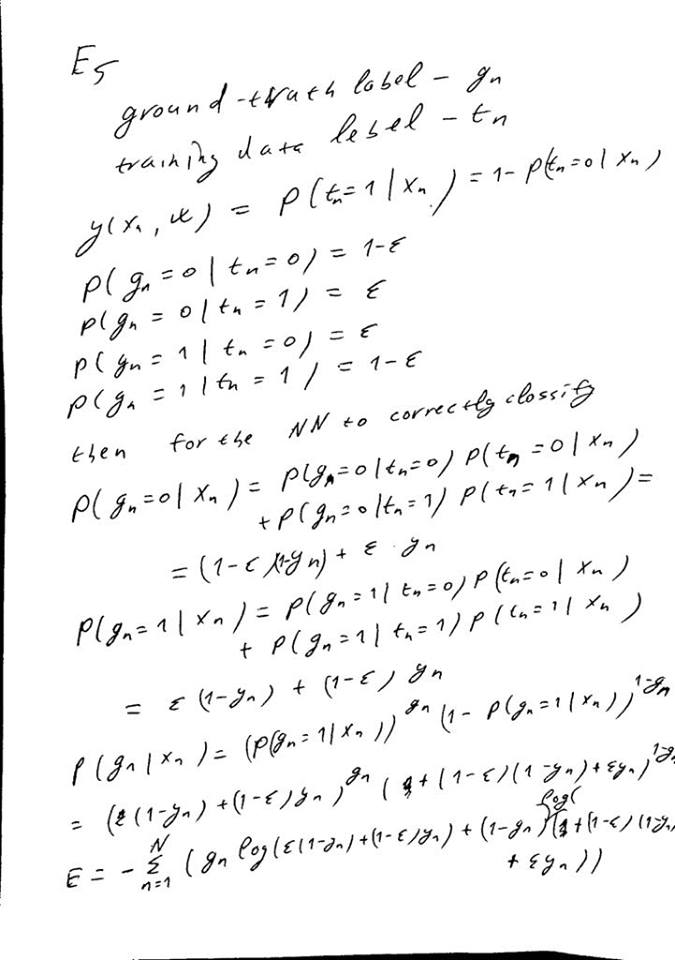 E5
ground-truth label - gn
training data lebel - tn
y(xn, w) = P(tn=1 | xn) = 1- P(tn=0 | xn)
P(gn=0 | tn=0) = 1-ε
P(gn = 0 | tn = 1) = ε
P(gn = 1 | tn = 0) = ε
P(gn = 1 | tn = 1) = 1-ε
then for the NN to correctly classify
P(gn=0 | xn) = P(gn=0 | tn=0) P(tn=0 | xn)
+ P(gn=0 | tn=1) P(tn=1 | xn) =
= (1-ε)(1-yn) + ε · yn
P(gn=1 | xn) = P(gn=1 | tn=0) P(tn=0 | xn)
+ P(gn=1 | tn=1) P(tn=1 | xn)
= ε (1-yn) + (1-ε) yn
P(gn | xn) = (P(gn=1 | xn))^gn (1 - P(gn=1 | xn))^1-gn
= (ε(1-yn) + (1-ε) yn)^gn ( + (1-ε)(1-yn) + εyn)^1-gn
E = - Σ_{n=1}^N (gn log(ε(1-yn) + (1-ε)yn) + (1-gn) log( + (1-ε)(1-yn)
+ εyn))